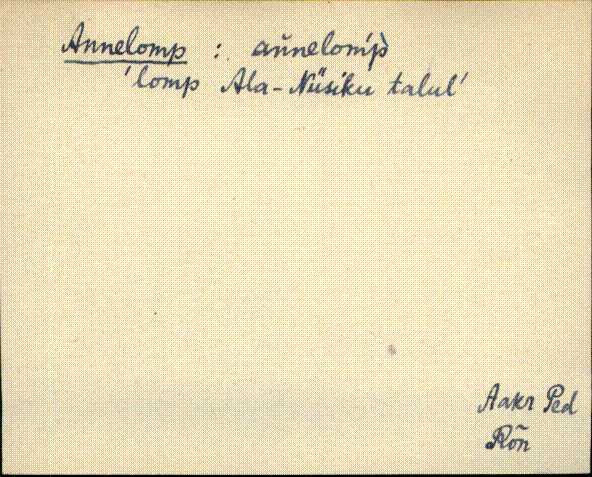 Annelomp : an̆nelomp̀
'lomp Ala-Nüsiku talul'
Aakr Ped
Rõn